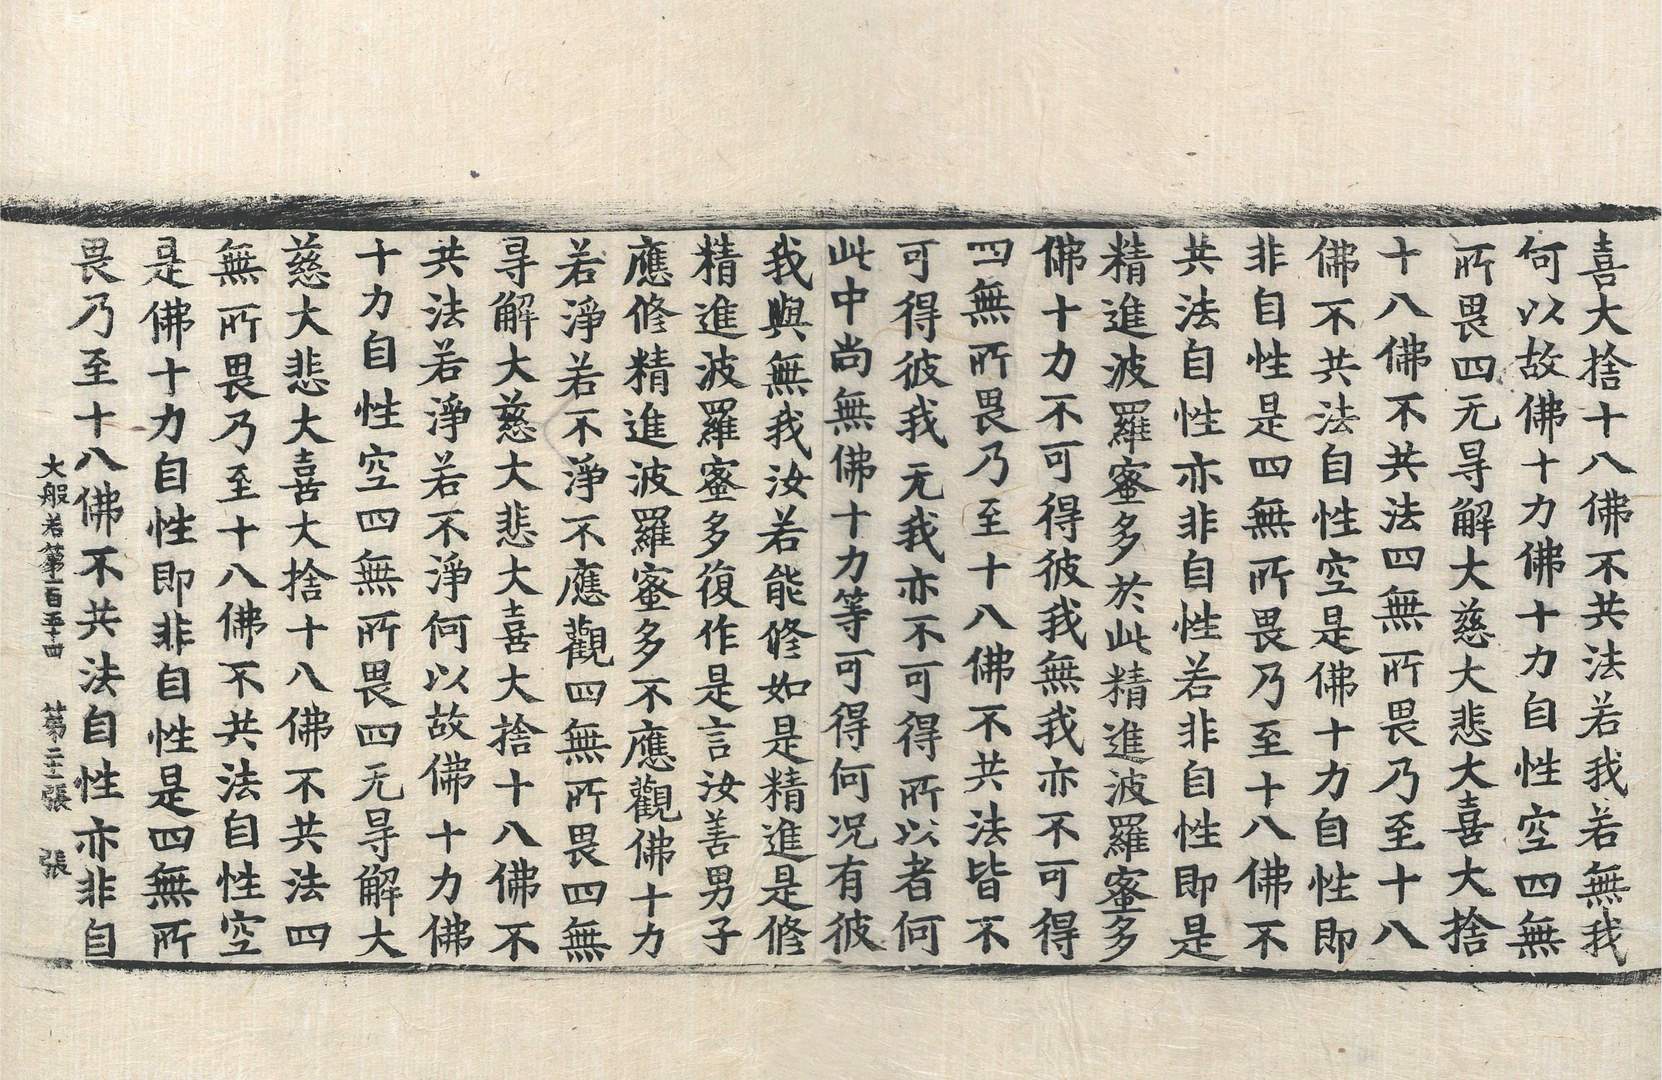 喜大捨十八佛不共法若我若無我
何以故佛十力佛十力自性空四無
所畏四无㝵解大慈大悲大喜大捨
十八佛不共法四無所畏乃至十八
佛不共法自性空是佛十力自性即
非自性是四無所畏乃至十八佛不
共法自性亦非自性若非自性即是
精進波羅蜜多於此精進波羅蜜多
佛十力不可得彼我無我亦不可得
四無所畏乃至十八佛不共法皆不
可得彼我无我亦不可得所以者何
此中尚無佛十力等可得何況有彼
我與無我汝若能修如是精進是修
精進波羅蜜多復作是言汝善男子
應修精進波羅蜜多不應觀佛十力
若淨若不淨不應觀四無所畏四無
㝵解大慈大悲大喜大捨十八佛不
共法若淨若不淨何以故佛十力佛
十力自性空四無所畏四无㝵解大
慈大悲大喜大捨十八佛不共法四
無所畏乃至十八佛不共法自性空
是佛十力自性即非自性是四無所
畏乃至十八佛不共法自性亦非自
大般若第一百五十四 第二十二張 張